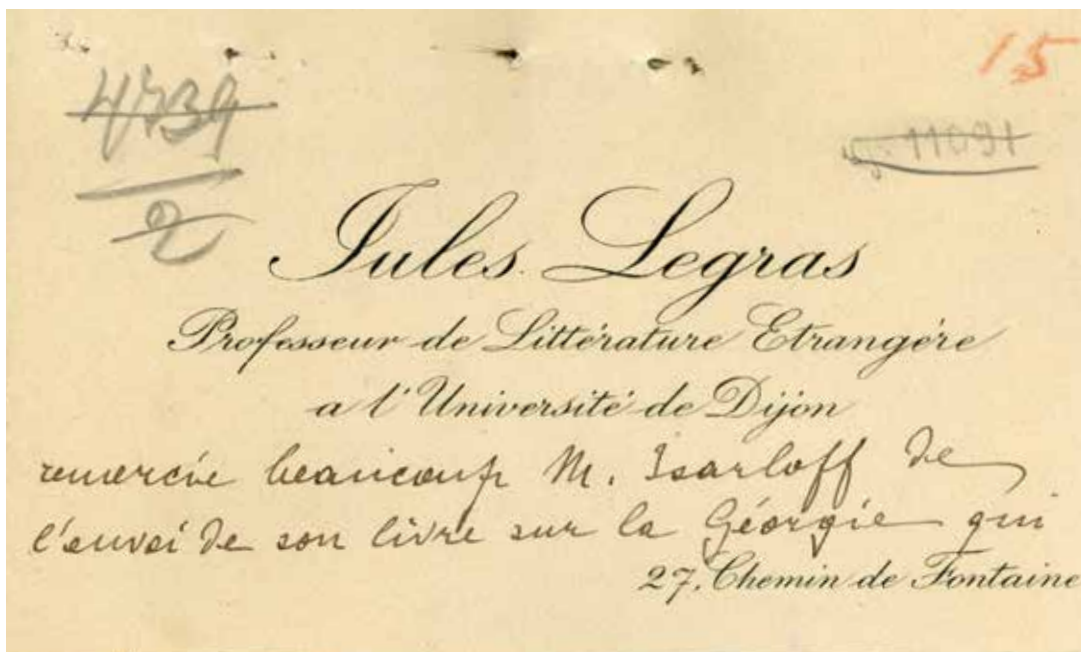 15
4739
11091
2
Jules Legras
Professeur de Littérature Etrangère
a l'Université de Dijon
remercie beaucoup M. Isarloff de
l'envoi de son livre sur la Géorgie qui
27, Chemin de Fontaine